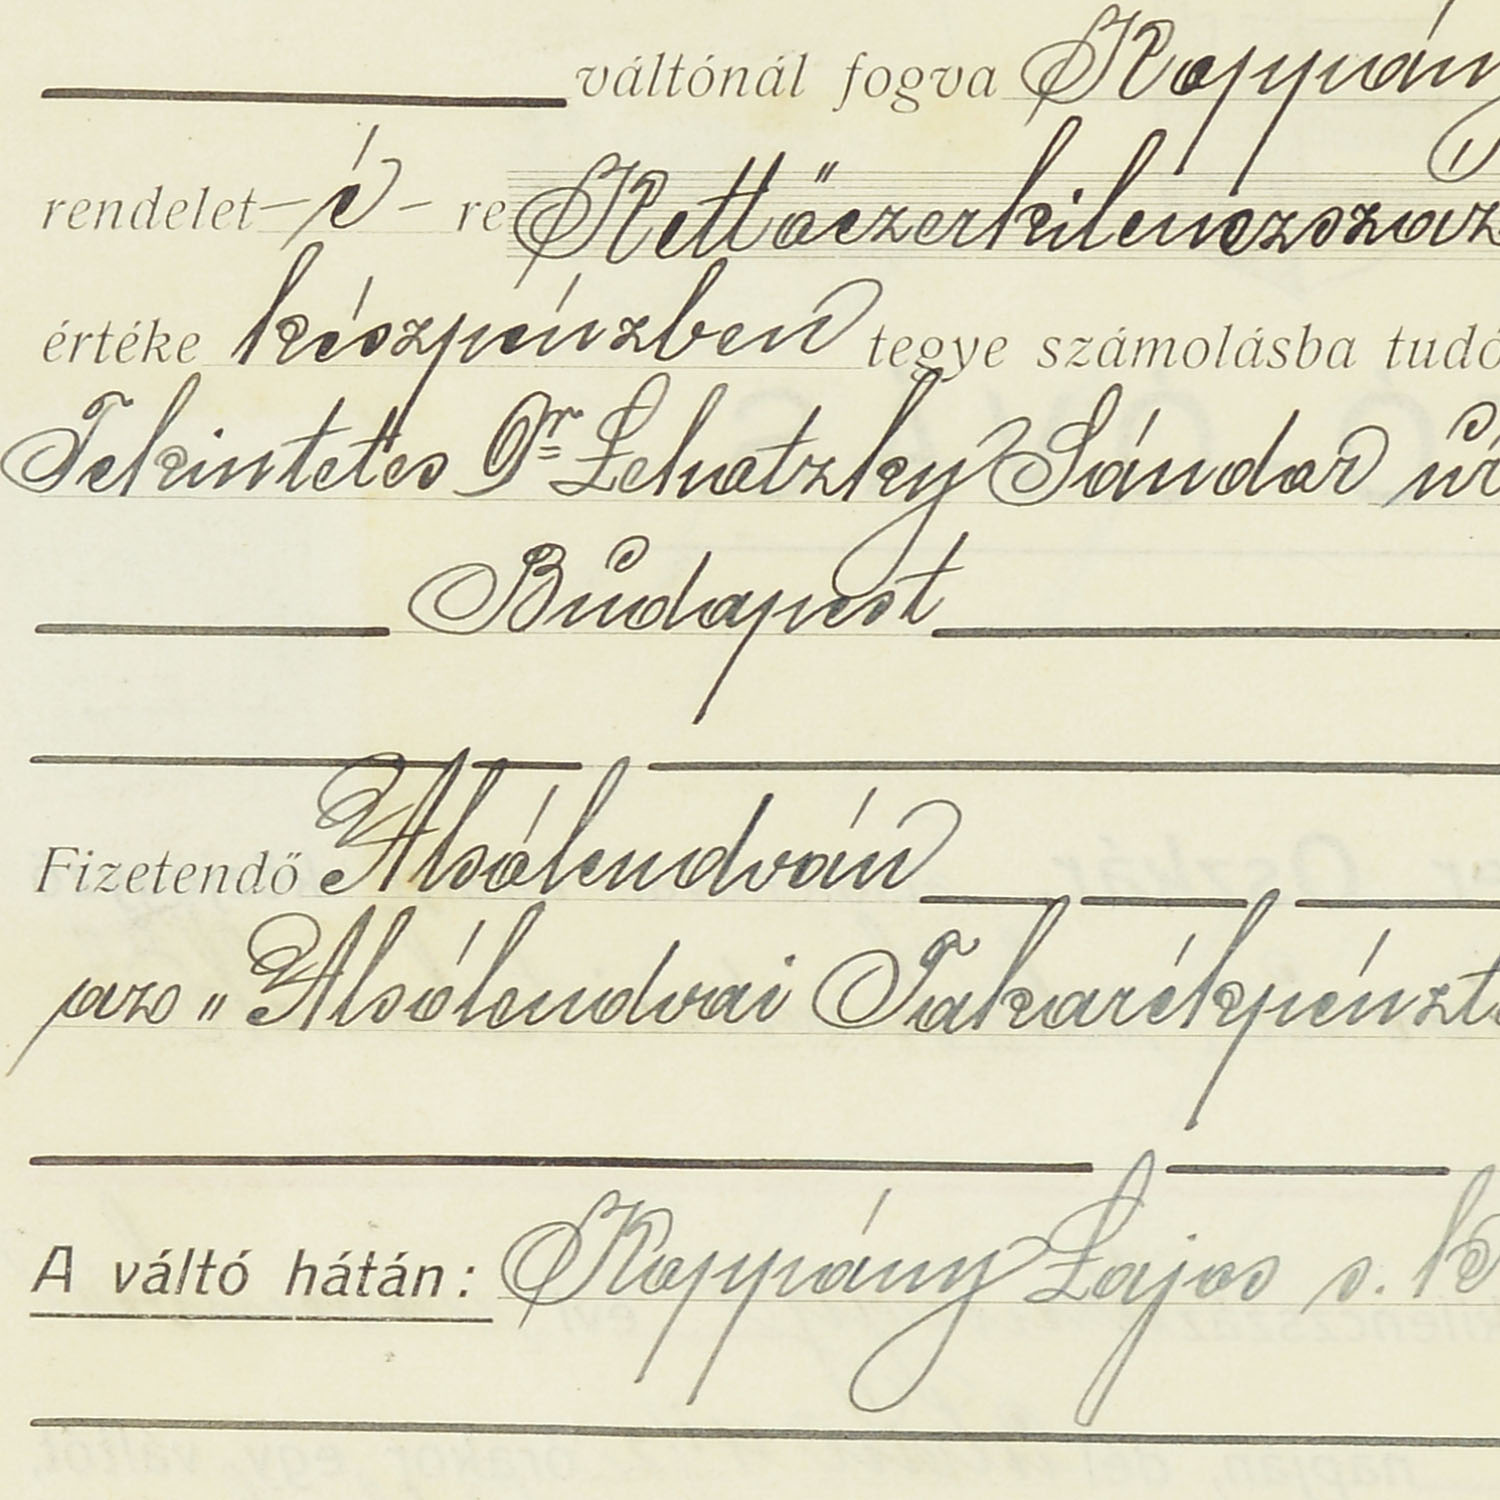 váltónál fogva Koppány
rendelet-é-re Kettőezerkilenczszáz
értéke készpénzben tegye számolásba tudó
Tekintetes Dr Lehotzky Sándor úr
Budapest
Fizetendő Alsólendván
az „Alsólendvai Takarékpénzt
A váltó hátán: Koppány Lajos s. k